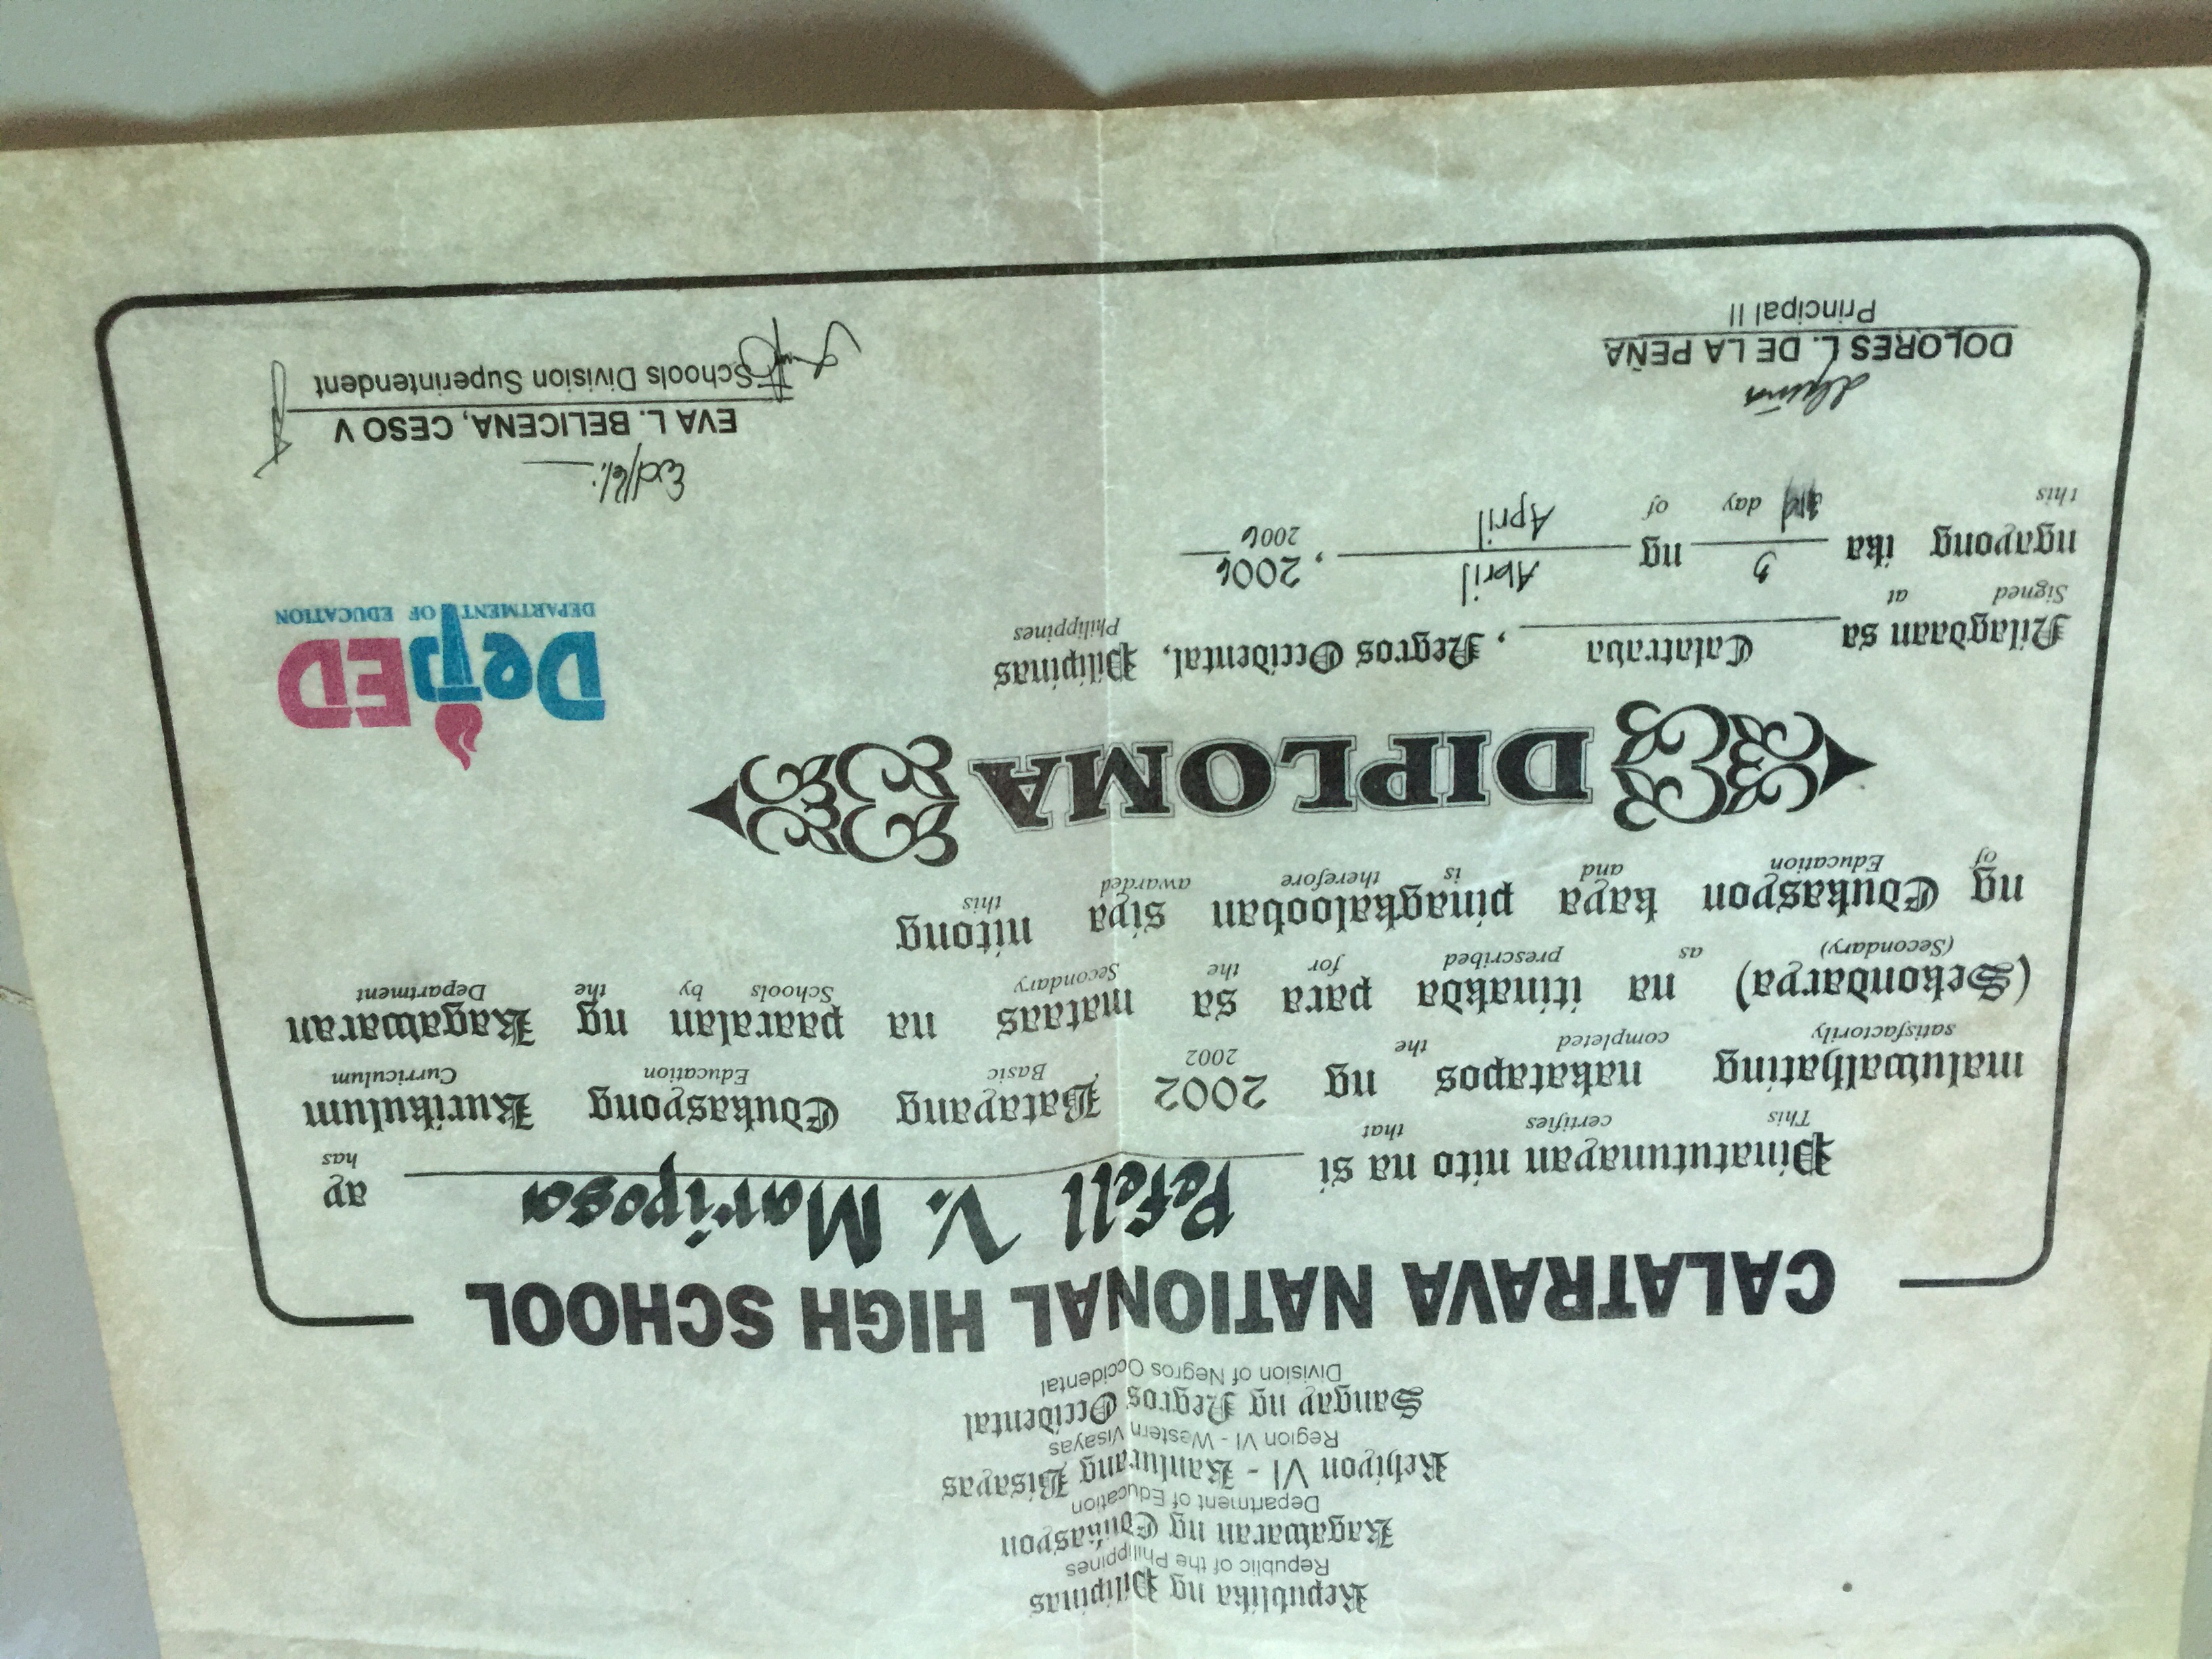 Republika ng Pilipinas
Republic of the Philippines
Kagawaran ng Edukasyon
Department of Education
Rehiyon VI - Kanlurang Bisayas
Region VI - Western Visayas
Sangay ng Negros Occidental
Division of Negros Occidental
CALATRAVA NATIONAL HIGH SCHOOL
Pinatutunayan nito na si Pefell V. Mariposa ay
This certifies that has
maluwalhating nakatapos ng 2002 Batayang Edukasyong Kurikulum
satisfactorily completed the 2002 Basic Education Curriculum
(Sekondarya) na itinakda para sa mataas na paaralan ng Kagawaran
(Secondary) as prescribed for the Secondary Schools by the Department
ng Edukasyon kaya pinagkalooban siya nitong
of Education and is therefore awarded this
DIPLOMA
DepED
DEPARTMENT OF EDUCATION
Nilagdaan sa Calatrava, Negros Occidental, Pilipinas
Signed at Philippines
ngayong ika 3 ng Abril, 2006
this day of April 2006
DOLORES L. DE LA PEÑA
Principal II
EVA L. BELICENA, CESO V
Schools Division Superintendent